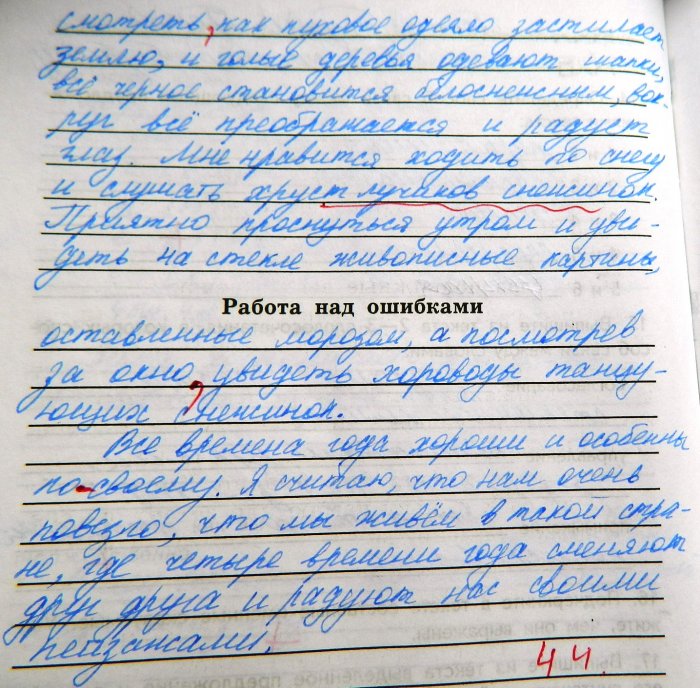 смотреть, как пуховое одеяло застилает
землю, и голые деревья одевают шапки,
всё черное становится белоснежным, вок-
руг всё преображается и радует
глаз. Мне нравится ходить по снегу
и слушать хруст лучиков снежинок.
Приятно проснуться утром и уви-
деть на стекле живописные картины,
Работа над ошибками
оставленные морозом, а посмотрев
за окно, увидеть хороводы танцу-
ющих снежинок.
Все времена года хороши и особенны
по-своему. Я считаю, что нам очень
повезло, что мы живём в такой стра-
не, где четыре времени года сменяют
друг друга и радуют нас своими
пейзажами.
4 4.